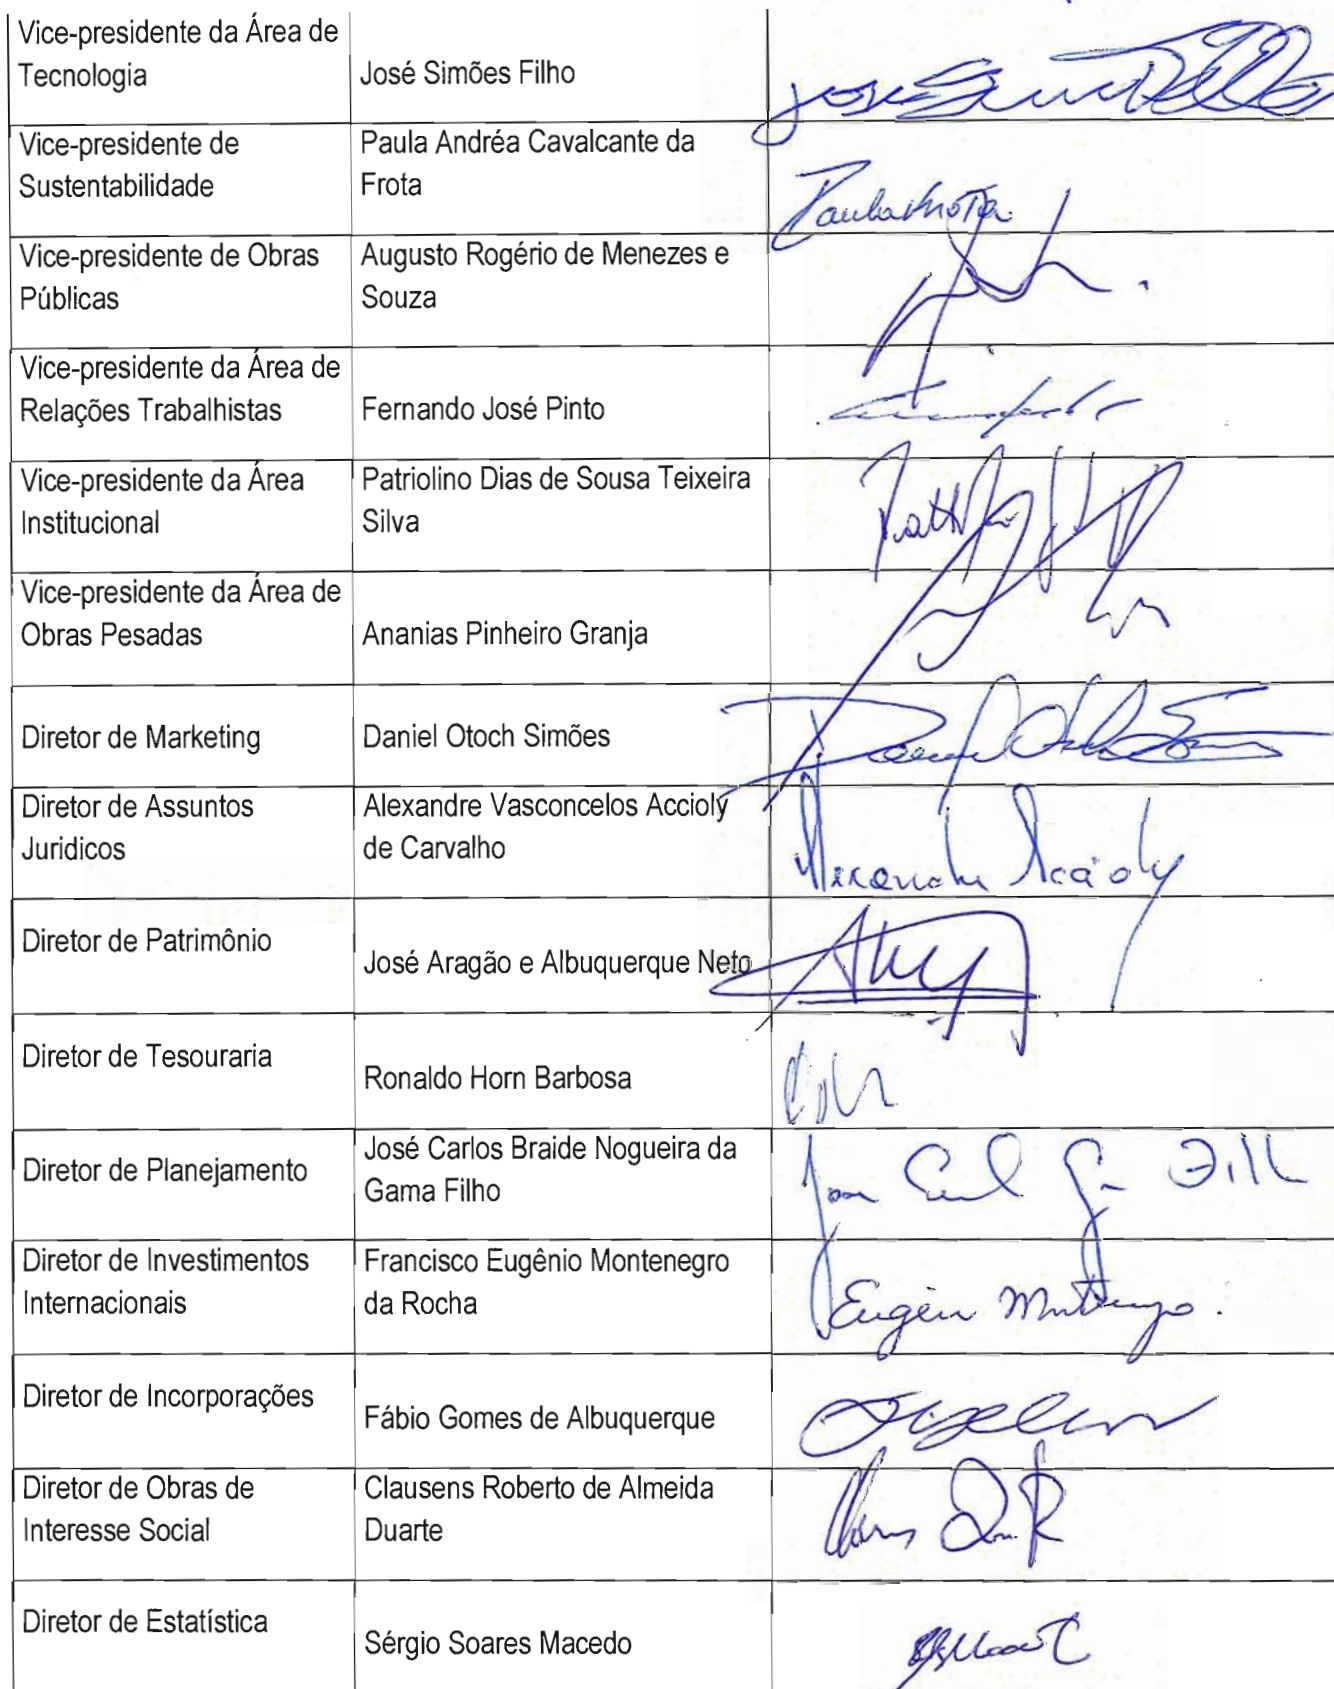 Vice-presidente da Área de
Tecnologia
José Simões Filho
Vice-presidente de
Sustentabilidade
Paula Andréa Cavalcante da
Frota
Vice-presidente de Obras
Públicas
Augusto Rogério de Menezes e
Souza
Vice-presidente da Área de
Relações Trabalhistas
Fernando José Pinto
Vice-presidente da Área
Institucional
Patriolino Dias de Sousa Teixeira
Silva
Vice-presidente da Área de
Obras Pesadas
Ananias Pinheiro Granja
Diretor de Marketing
Daniel Otoch Simões
Diretor de Assuntos
Juridicos
Alexandre Vasconcelos Accioly
de Carvalho
Diretor de Patrimônio
José Aragão e Albuquerque Neto
Diretor de Tesouraria
Ronaldo Horn Barbosa
Diretor de Planejamento
José Carlos Braide Nogueira da
Gama Filho
Diretor de Investimentos
Internacionais
Francisco Eugênio Montenegro
da Rocha
Diretor de Incorporações
Fábio Gomes de Albuquerque
Diretor de Obras de
Interesse Social
Clausens Roberto de Almeida
Duarte
Diretor de Estatística
Sérgio Soares Macedo